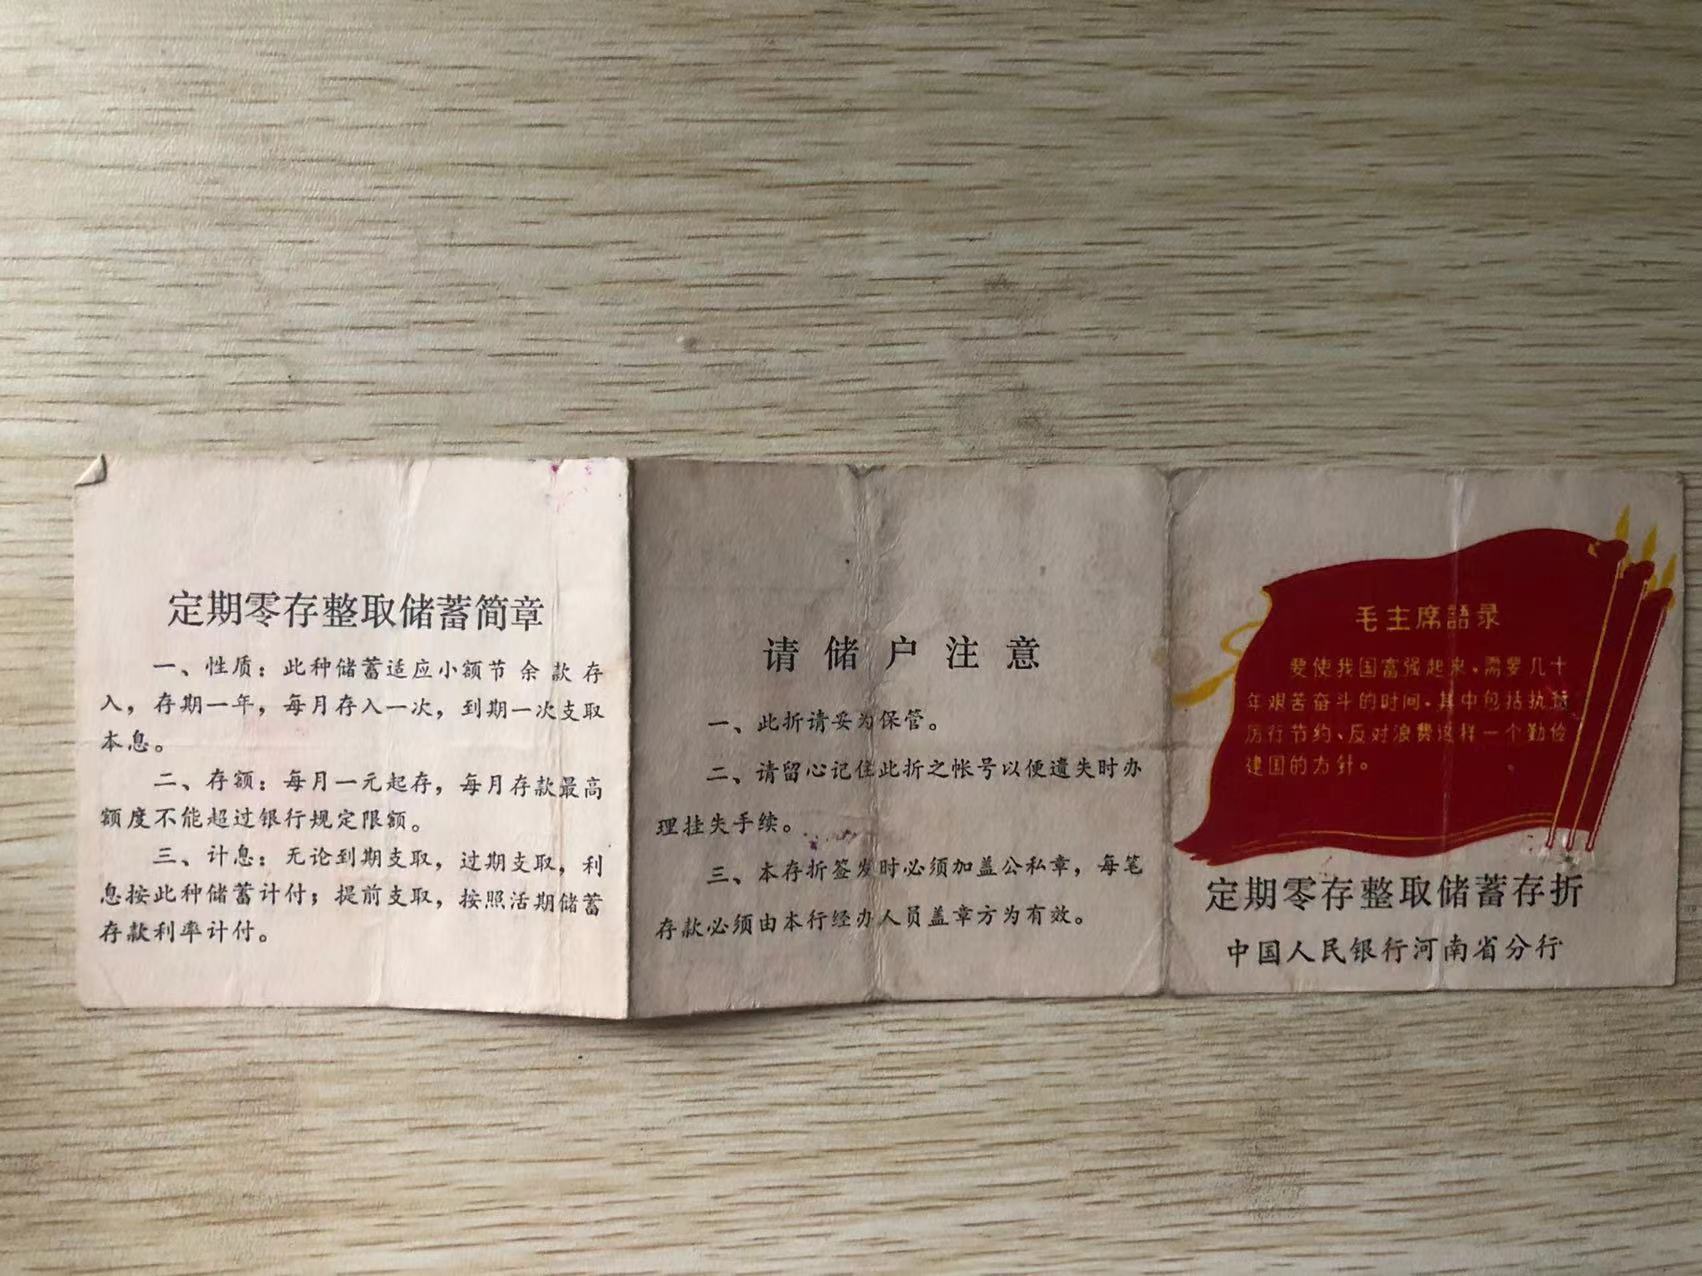 定期零存整取储蓄简章
一、性质：此种储蓄适应小额节余款存
入，存期一年，每月存入一次，到期一次支取
本息。
二、存额：每月一元起存，每月存款最高
额度不能超过银行规定限额。
三、计息：无论到期支取，过期支取，利
息按此种储蓄计付；提前支取，按照活期储蓄
存款利率计付。
请储户注意
一、此折请妥为保管。
二、请留心记住此折之帐号以便遗失时办
理挂失手续。
三、本存折签发时必须加盖公私章，每笔
存款必须由本行经办人员盖章方为有效。
毛主席語录
要使我国富强起来，需要几十
年艰苦奋斗的时间，其中包括执行
厉行节约、反对浪费这样一个勤俭
建国的方针。
定期零存整取储蓄存折
中国人民银行河南省分行